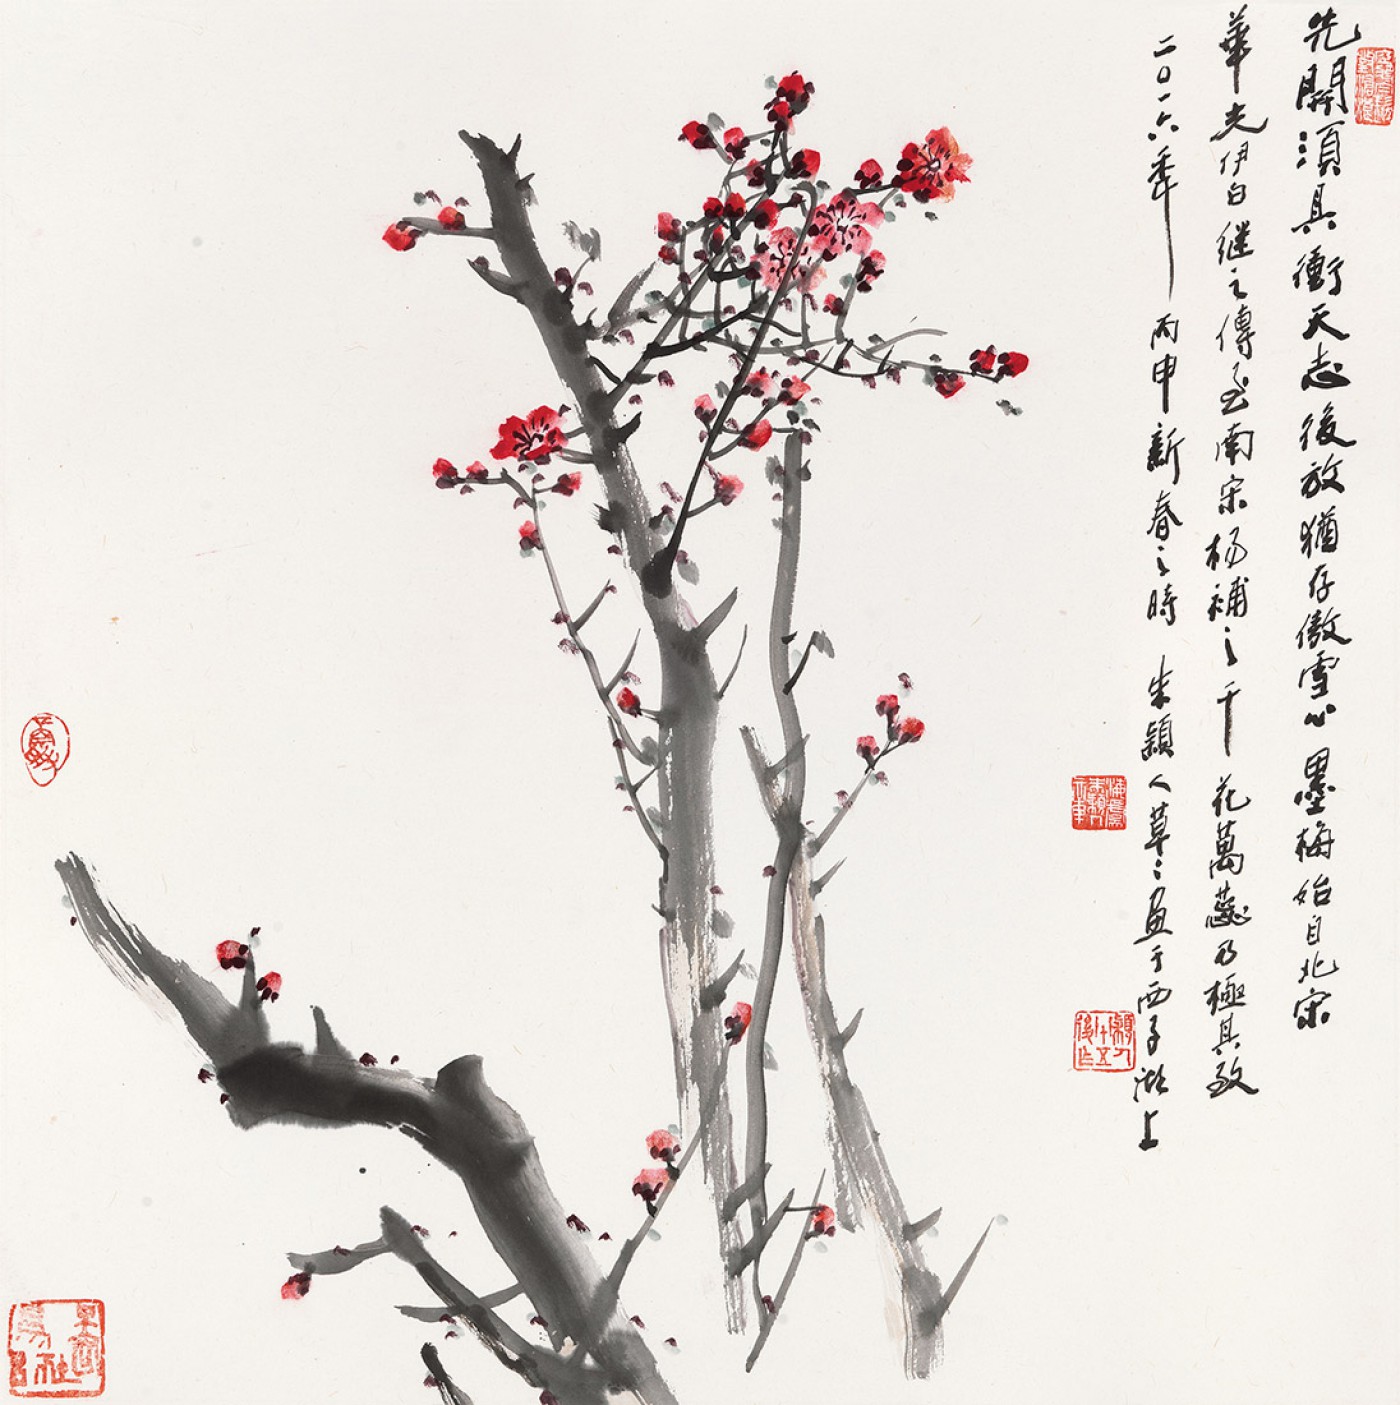 先開須具衝天志後放猶存傲雪心墨梅始自北宋
華光伊白繼之傳至南宋楊補之千花萬蕊乃極其致
二〇一六年丙申新春之時朱穎人草草畫于西子湖上